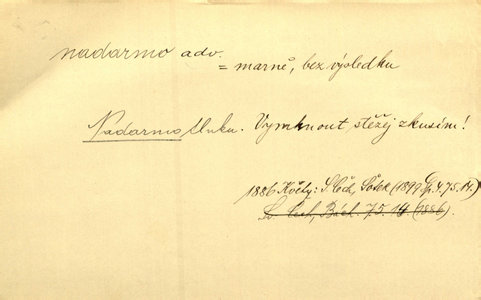 nadarmo adv.
= marně, bez výsledku
Nadarmo tluku. Vymknout, stěžej zkusím!
1886 Květy: S. Čech, (1899 4.75.14.)
Sv. Čech, 75. 14 (1886).